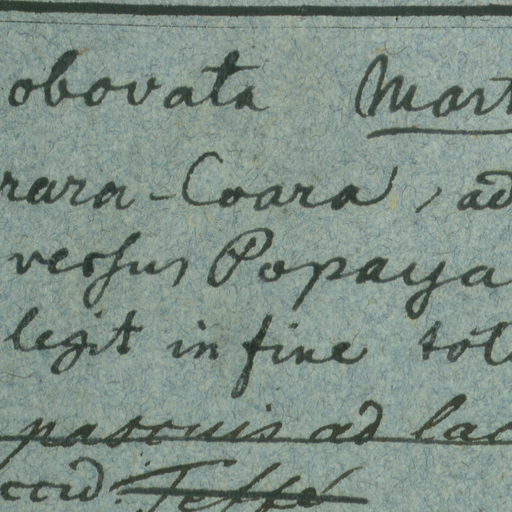 obovata Mart
rara-Coara, ad
versus Popaya
legit in fine sol
pascuis ad lac
ccid. Teffé